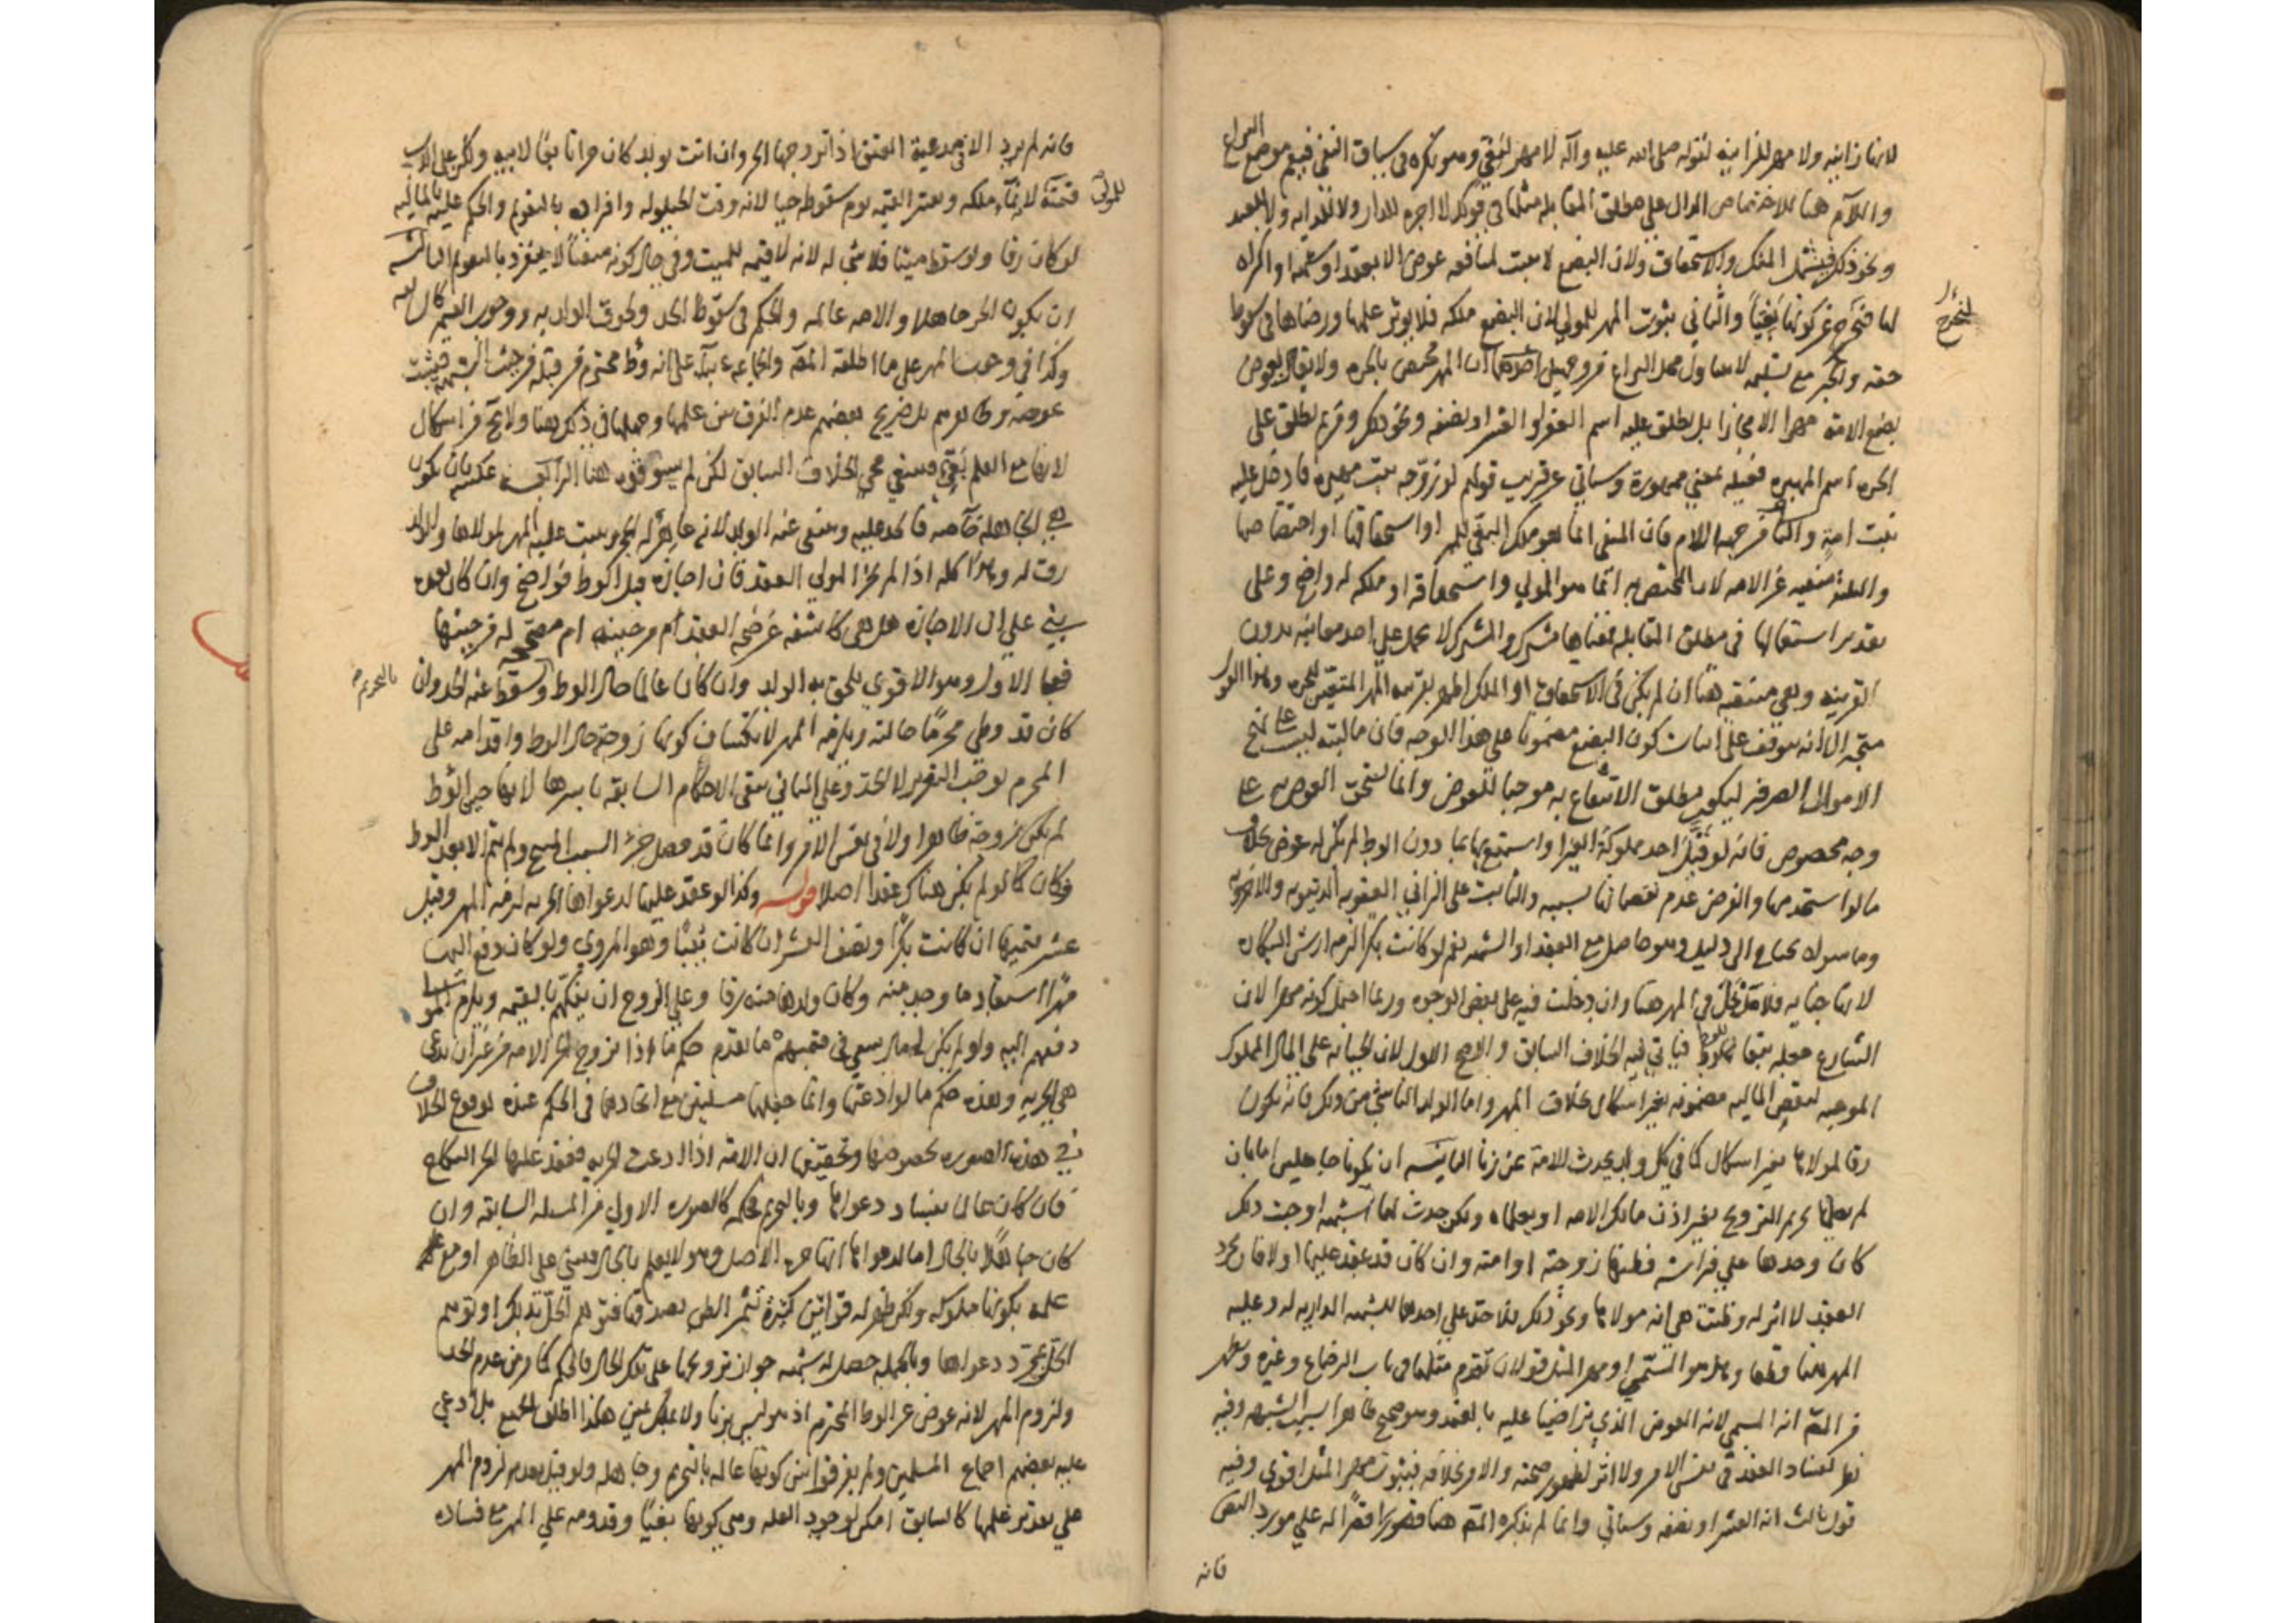 لانها زانية ولا مهر للزانية لقوله صلى الله عليه وآله لا مهر لبغي وهو نكرة في سياق النفي فيعم موضع النزاع
واللام هنا للاختصاص الدال على مطلق المقابلة مثلها في قولك لا اجرة للدار ولا للدابة ولا للعبد
ونحو ذلك فيشمل الملك والاستحقاق ولان البضع لا يثبت لمنافعه عوض الا بعقد او شبهة او اكراه
لها فتخرج عن كونها بغيا والثاني ثبوت المهر للمولى لان البضع ملكه فلا يؤثر علمها ورضاها في سقوط
حقه والخبر مع تسليمه لا يتناول محل النزاع من وجهين احدهما ان المهر مخصص بالحرة ولا يقال لعوض
بضع الامة مهرا الا مجازا بل يطلق عليه اسم العقر او العشر او نصفه ونحو ذلك ومن ثم يطلق على
الحرة اسم المهيرة فعيلة بمعنى ممهورة وسياتي عن قريب قولهم لو زوجه بنت مهيرة فادخل عليه
بنت امة والثاني من جهة اللام فان المنفي انما هو ملك البغي للمهر او استحقاقها او اختصاصها
والثلثة منفية عن الامة لان المختص به انما هو المولى واستحقاقه او ملكه له واضح وعلى
تقدير استعمالها في مطلق المقابلة فمعناها مشترك والمشترك لا يحمل على احد معانيه بدون
القرينة وهي منتفية هنا ان لم يكن في الاستحقاق او الملك اظهر بقرينة المهر المتيقن للحرة وهذا القول
متجه الا انه يتوقف على اثبات كون البضع مضمونا على هذا الوجه فان ماليته ليست على نهج
الاموال الصرفة ليكون مطلق الانتفاع به موجبا للعوض وانما يستحق العوض به على
وجه مخصوص فانه لو قبل احد مملوكة الغير او استمتع بها بما دون الوطء لم يكن له عوض بخلاف
ما لو استخدمها والفرض عدم نقصانها بسببه والثابت على الزاني العقوبة الدنيوية والاخروية
وما سواه يحتاج الى دليل وهو حاصل مع العقد او الشبهة نعم لو كانت بكرا لزمه ارش البكارة
لانها جناية فلا مدخل في المهر هنا وان دخلت فيه على بعض الوجوه وربما احتمل كونه مهرا لان
الشارع جعله تبعا للوطء فياتي فيه الخلاف السابق والاصح الاول لان الجناية على المال المملوك
الموجبة لنقص المالية مضمونة بغير اشكال بخلاف المهر واما الولد الناشئ من ذلك فانه يكون
رقا لمولاها بغير اشكال كما في كل ولد يحدث للامة عن زنا الثانية ان يكونا جاهلين اما بان
لم يعلما تحريم التزويج بغير اذن مالك الامة او يعلماه ولكن حدث لهما شبهة اوجبت ذلك
كان وجدها على فراشه فظنها زوجته او امته وان كان قد عقد عليها اولا فان مجرد
العقد لا اثر له وظنت هي انه مولاها ونحو ذلك فلا حد على احدهما للشبهة الدارية له وعليه
المهر هنا قطعا وهل هو المسمى او مهر المثل قولان تقدم مثلهما في باب الرضاع وغيره ويظهر
من المصنف انه المسمى لانه العوض الذي تراضيا عليه بالعقد وهو صحيح ظاهرا بسبب الشبهة وفيه
نظر لفساد العقد في نفس الامر ولا اثر لظهور صحته والامر بخلافه فثبوت مهر المثل اقوى وفيه
قول ثالث انه العشر او نصفه وسياتي وانما لم يذكره المصنف هنا قصورا فقرا له على مورد النص
فانه
فانه لم يرد الا في مدعية العتق اذا تزوجها الحر وان اتت بولد كان حرا تابعا لابيه ولكن على الاب
قيمته لانه نماء ملكه ويعتبر القيمة يوم سقوطه حيا لانه وقت الحيلولة وافراده بالتقويم والحكم عليه بالمالية
للمولى
لو كان رقا ولو سقط ميتا فلا شيء له لانه لا قيمة للميت وفي حال كونه متصلا لا ينفرد بالتقويم الثالثة
ان يكون الحر جاهلا والامة عالمة والحكم في سقوط الحد ولحوق الولد به ووجوب القيمة كما سبق
وكذا في وجوب المهر على ما اطلقه المصنف والجماعة بناء على انه وطء محترم من قبله من حيث الشبهة فيثبت
عوضه وظاهرهم بل صريح بعضهم عدم الفرق بين علمها وجهلها في ذلك هنا ولا يخ من اشكال
لانها مع العلم بغي فينبغي مجيء الخلاف السابق لكن لم ينقلوه هنا الرابعة عكسه بان يكون
هي الجاهلة خاصة فالحد عليه وينتفي عنه الولد لانه عاهر له الحجر ويثبت عليه المهر لمولاها والولد
رق له وهذا كله اذا لم يجز المولى العقد فان اجازه قبل الوطء فواضح وان كان بعده
بني على ان الاجازة هل هي كاشفة عن صحة العقد من حينه ام مصححة له من حينها
فعلى الاول وهو الاقوى يلحق به الولد وان كان عالما حال الوطء بالتحريم وسقط عنه الحد وان
كان قد وطئ محرما حالته ويلزمه المهر لانكشاف كونها زوجة حال الوطء واقدامه على
المحرم يوجب التعزير لا الحد وعلى الثاني ينتفي الاحكام السابقة باسرها لانها حين الوطء
لم يكن زوجة ظاهرا ولا في نفس الامر وانما كان قد حصل جزء السبب المبيح ولم يتم الا بعد الوطء
فكان كما لو لم يكن هناك عقد اصلا قوله وكذا لو عقد عليها لدعواها الحرية لزمه المهر وقيل
عشر قيمتها ان كانت بكرا ونصف العشر ان كانت ثيبا وهو المروي ولو كان دفع اليها
مهرا استعاد ما وجد منه وكان ولدها منه رقا وعلى الزوج ان يفكهم بالقيمة ويلزم المولى
دفعهم اليه ولو لم يكن له مال سعى في قيمتهم ما تقدم حكم ما اذا تزوج الحر الامة من غير ان تدعي
هي الحرية وهذه حكم ما لو ادعتها وانما جعلها مسئلتين مع اتحادهما في الحكم عنده لوقوع الخلاف
في هذه الصورة بخصوصها وتحقيقها ان الامة اذا ادعت الحرية فعقد عليها الحر النكاح
فان كان عالما بفساد دعواها وبالتحريم فحكمه كالصورة الاولى من المسئلة السابقة وان
كان جاهلا بالحال اما لدعواها انها حرة الاصل وهو لا يعلم بالحال فبنى على الظاهر او مع
علمه بكونها مملوكة ولكن ظهر له قرائن كثيرة تثمر الظن بصدقها فتوهم الحل بذلك او توهم
الحل بمجرد دعواها وبالجملة حصل له شبهة جواز تزويجها على تلك الحال فالحكم كما مر من عدم الحد
ولزوم المهر لانه عوض عن الوطء المحترم اذ هو ليس بزنا ولا بملك يمين هكذا اطلق الجميع بل ادعى
عليه بعضهم اجماع المسلمين ولم يفرقوا بين كونها عالمة بالتحريم وجاهلة ولو قيل بعدم لزوم المهر
على تقدير علمها كالسابق امكن لوجود العلة وهي كونها بغيا وقدومه على المهر مع فساده